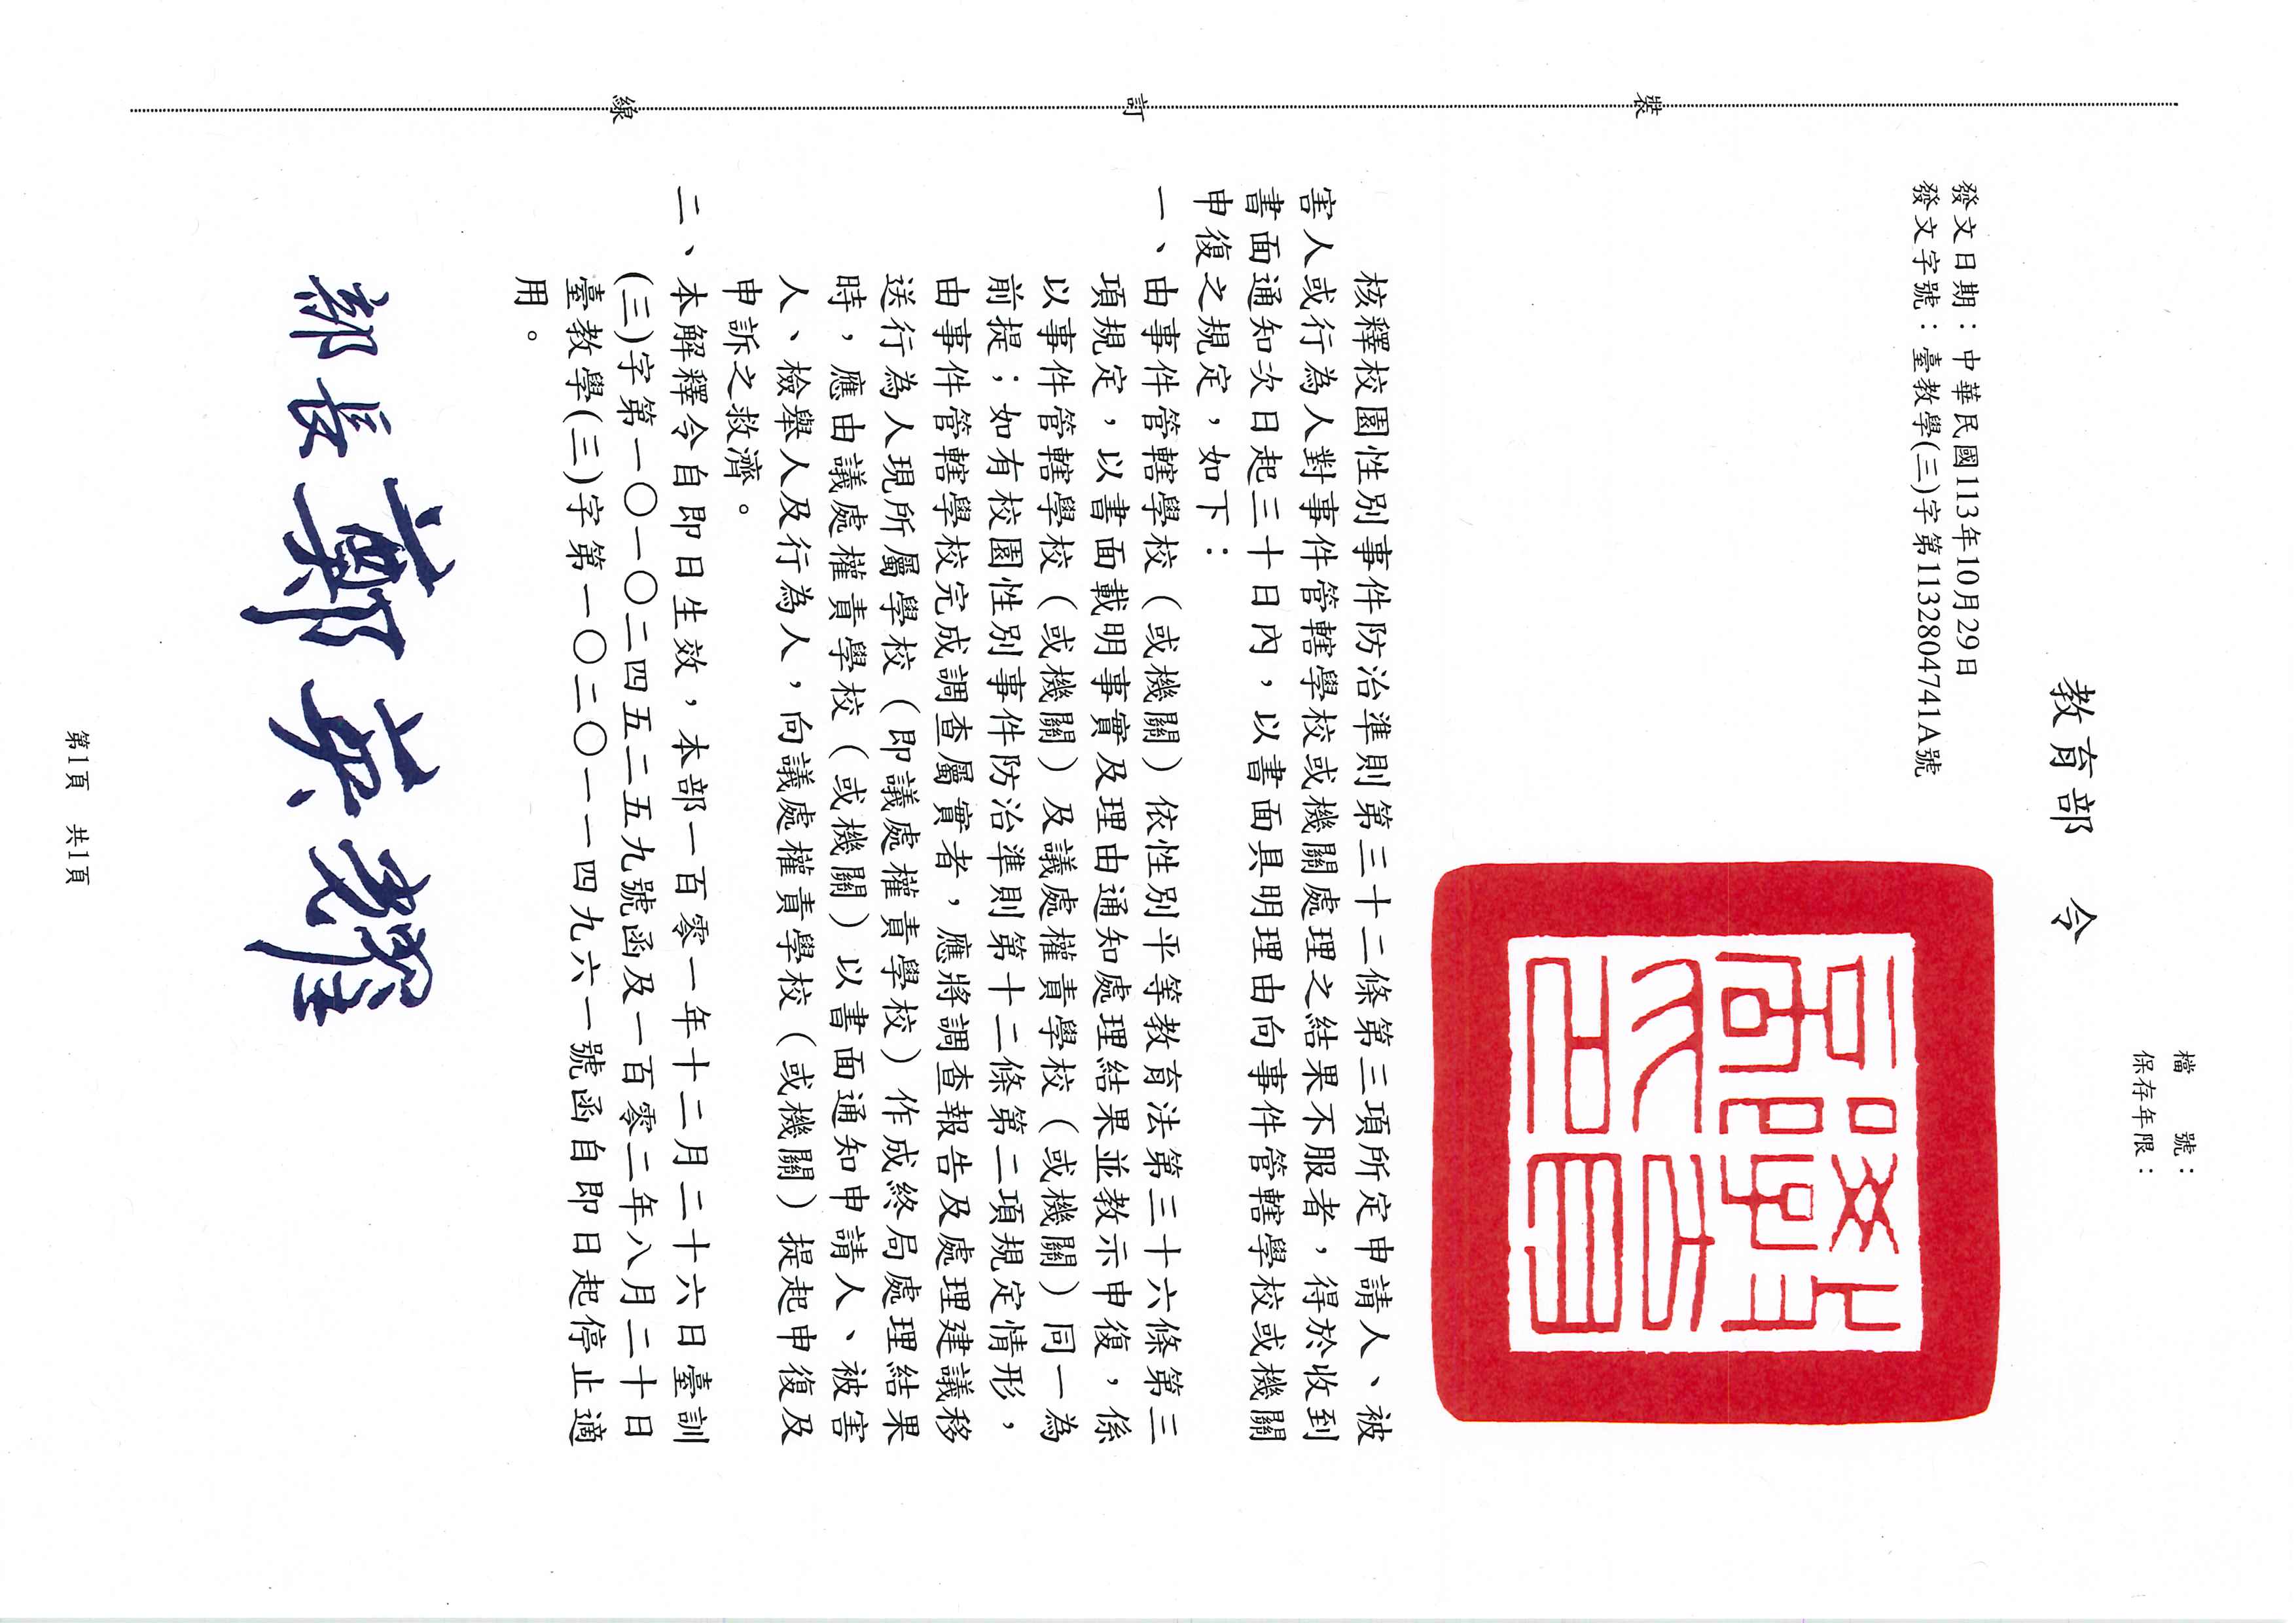 檔　　號：
保存年限：
教育部　令
發文日期：中華民國113年10月29日
發文字號：臺教學(三)字第1132804741A號
核釋校園性別事件防治準則第三十二條第三項所定申請人、被
害人或行為人對事件管轄學校或機關處理之結果不服者，得於收到
書面通知次日起三十日內，以書面具明理由向事件管轄學校或機關
申復之規定，如下：
一、由事件管轄學校（或機關）依性別平等教育法第三十六條第三
項規定，以書面載明事實及理由通知處理結果並教示申復，係
以事件管轄學校（或機關）及議處權責學校（或機關）同一為
前提；如有校園性別事件防治準則第十二條第二項規定情形，
由事件管轄學校完成調查屬實者，應將調查報告及處理建議移
送行為人現所屬學校（即議處權責學校）作成終局處理結果
時，應由議處權責學校（或機關）以書面通知申請人、被害
人、檢舉人及行為人，向議處權責學校（或機關）提起申復及
申訴之救濟。
二、本解釋令自即日生效，本部一百零一年十二月二十六日臺訓
(三)字第一〇一〇二四五二五九號函及一百零二年八月二十日
臺教學(三)字第一〇二〇一一四九六一號函自即日起停止適
用。
部長 鄭英耀
裝
訂
線
第1頁　共1頁